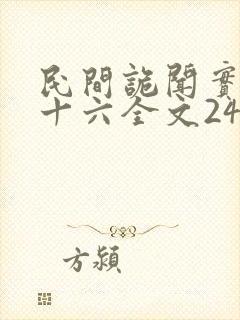 民間詭聞實
十六全文24
方潁